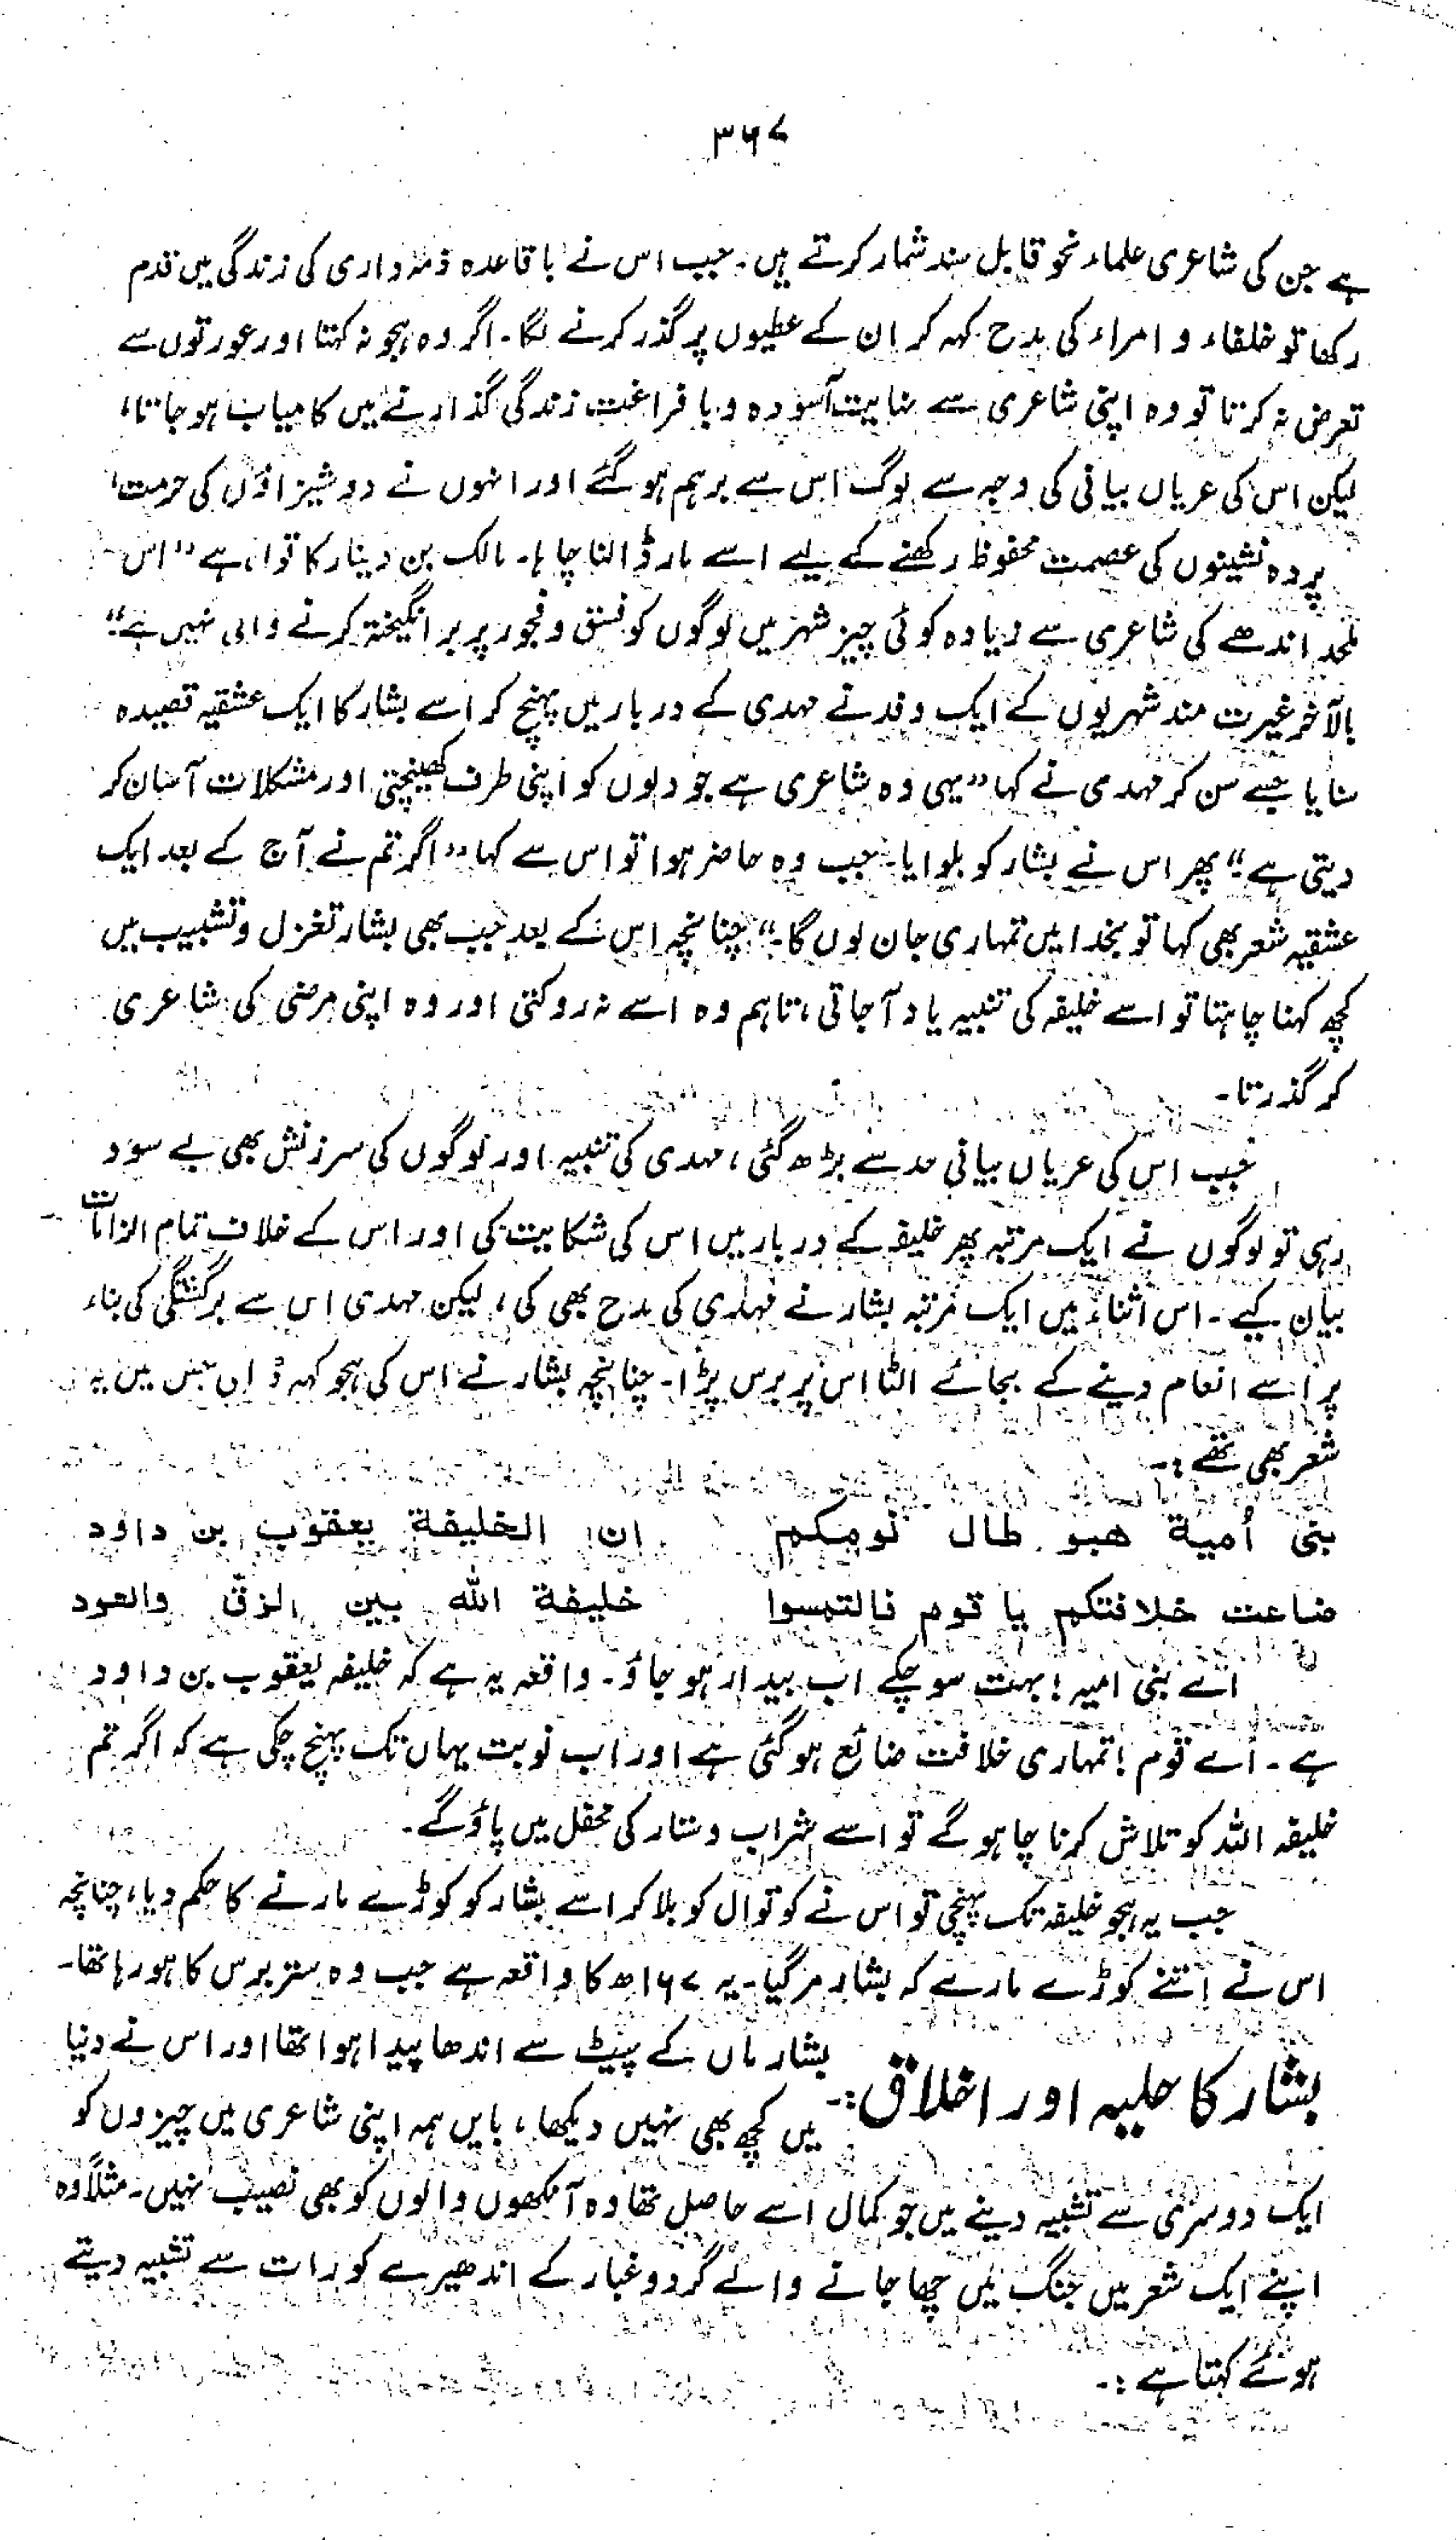 ۳۶۷
ہے جن کی شاعری علماء نحو قابل سند شمار کرتے ہیں۔ جب اس نے باقاعدہ ذمہ داری کی زندگی میں قدم
رکھا تو خلفاء و امراء کی مدح کہہ کر ان کے عطیوں پر گذر کرنے لگا۔ اگر وہ ہجو نہ کہتا اور عورتوں سے
تعرض نہ کرتا تو وہ اپنی شاعری سے نہایت آسودہ و با فراغت زندگی گذارنے میں کامیاب ہو جاتا،
لیکن اس کی عریاں بیانی کی وجہ سے لوگ اس سے برہم ہو گئے اور انہوں نے دوشیزاؤں کی حرمت،
پردہ نشینوں کی عصمت محفوظ رکھنے کے لیے اسے مار ڈالنا چاہا۔ مالک بن دینار کا قول ہے ”اس
ملحد اندھے کی شاعری سے زیادہ کوئی چیز شہر میں لوگوں کو فسق و فجور پر برانگیختہ کرنے والی نہیں ہے“
بالآخر غیرت مند شہریوں کے ایک وفد نے مہدی کے دربار میں پہنچ کر اسے بشار کا ایک عشقیہ قصیدہ
سنایا جسے سن کر مہدی نے کہا ”یہی وہ شاعری ہے جو دلوں کو اپنی طرف کھینچتی اور مشکلات آسان کر
دیتی ہے“ پھر اس نے بشار کو بلوایا۔ جب وہ حاضر ہوا تو اس سے کہا ”اگر تم نے آج کے بعد ایک
عشقیہ شعر بھی کہا تو بخدا میں تمہاری جان لوں گا۔“ چنانچہ اس کے بعد جب بھی بشار تغزل و تشبیب میں
کچھ کہنا چاہتا تو اسے خلیفہ کی تنبیہ یاد آجاتی، تاہم وہ اسے نہ روکتی اور وہ اپنی مرضی کی شاعری
کر گذرتا۔
جب اس کی عریاں بیانی حد سے بڑھ گئی، مہدی کی تنبیہ اور لوگوں کی سرزنش بھی بے سود
رہی تو لوگوں نے ایک مرتبہ پھر خلیفہ کے دربار میں اس کی شکایت کی اور اس کے خلاف تمام الزامات
بیان کیے۔ اس اثناء میں ایک مرتبہ بشار نے مہدی کی مدح بھی کی، لیکن مہدی اس سے برگشتگی کی بناء
پر اسے انعام دینے کے بجائے الٹا اس پر برس پڑا۔ چنانچہ بشار نے اس کی ہجو کہہ ڈالی جس میں یہ
شعر بھی تھے :-
بنی أمیة هبو طال نومکم ان الخلیفة یعقوب بن داود
ضاعت خلافتکم یا قوم فالتمسوا خلیفة الله بین الزق والعود
اے بنی امیہ! بہت سو چکے اب بیدار ہو جاؤ۔ واقعہ یہ ہے کہ خلیفہ یعقوب بن داود
ہے۔ اے قوم! تمہاری خلافت ضائع ہو گئی ہے اور اب نوبت یہاں تک پہنچ چکی ہے کہ اگر تم
خلیفہ اللہ کو تلاش کرنا چاہو گے تو اسے شراب و ستار کی محفل میں پاؤ گے۔
جب یہ ہجو خلیفہ تک پہنچی تو اس نے کوتوال کو بلا کر اسے بشار کو کوڑے مارنے کا حکم دیا، چنانچہ
اس نے اتنے کوڑے مارے کہ بشار مر گیا۔ یہ ۱۶۷ھ کا واقعہ ہے جب وہ ستر برس کا ہو رہا تھا۔
بشار کا حلیہ اور اخلاق :- بشار ماں کے پیٹ سے اندھا پیدا ہوا تھا اور اس نے دنیا
میں کچھ بھی نہیں دیکھا، بایں ہمہ اپنی شاعری میں چیزوں کو
ایک دوسری سے تشبیہ دینے میں جو کمال اسے حاصل تھا وہ آنکھوں والوں کو بھی نصیب نہیں۔ مثلاً وہ
اپنے ایک شعر میں جنگ میں چھا جانے والے گرد و غبار کے اندھیرے کو رات سے تشبیہ دیتے
ہوئے کہتا ہے :-